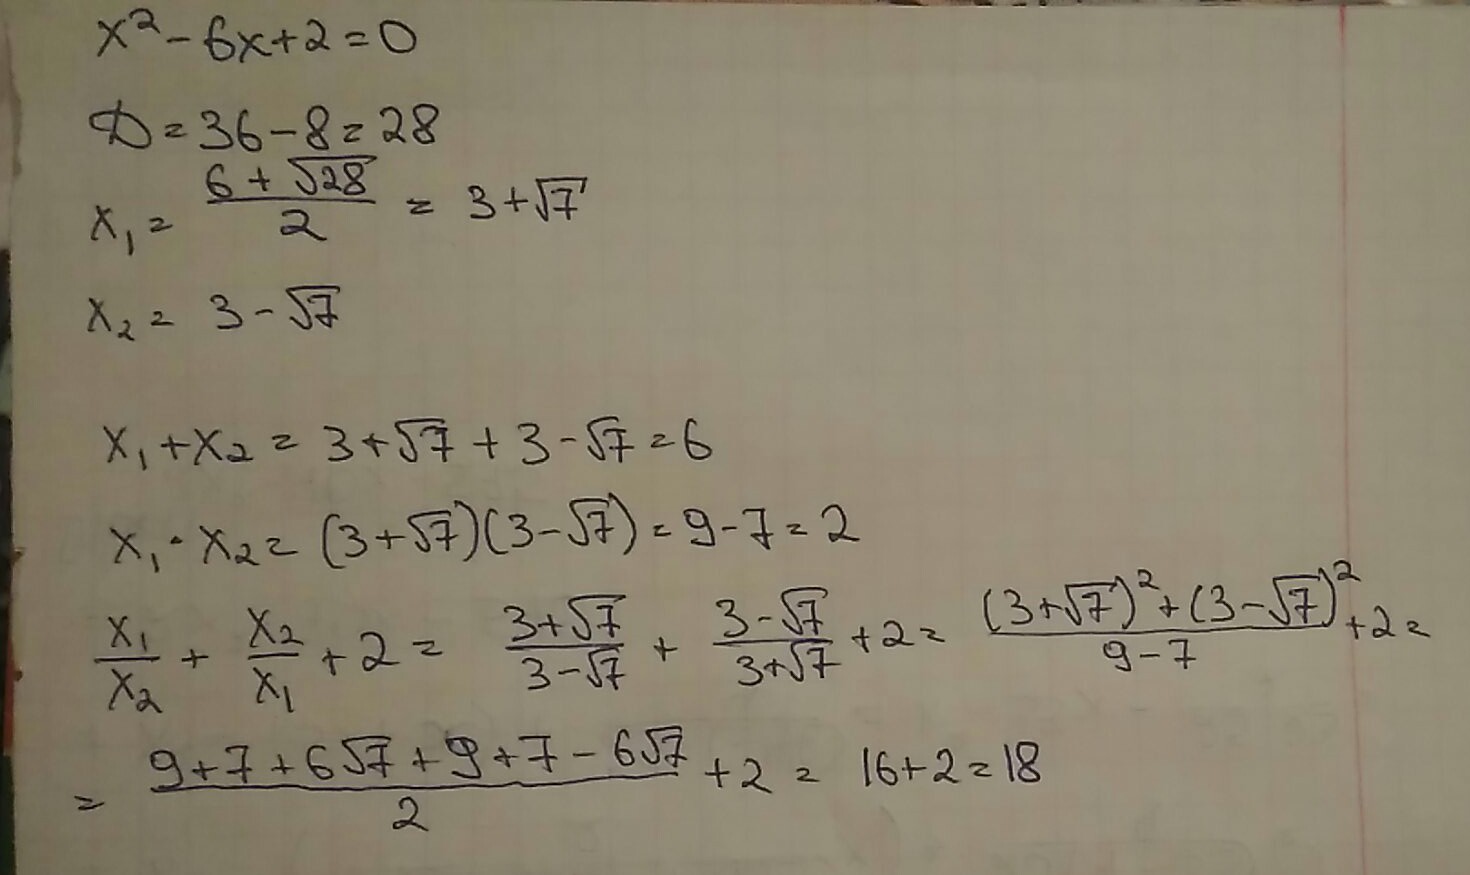 x² - 6x + 2 = 0
D = 36 - 8 = 28
x₁ = (6 + √28)/2 = 3 + √7
x₂ = 3 - √7
x₁ + x₂ = 3 + √7 + 3 - √7 = 6
x₁ · x₂ = (3 + √7)(3 - √7) = 9 - 7 = 2
x₁/x₂ + x₂/x₁ + 2 = (3 + √7)/(3 - √7) + (3 - √7)/(3 + √7) + 2 = ((3 + √7)² + (3 - √7)²)/(9 - 7) + 2 =
= (9 + 7 + 6√7 + 9 + 7 - 6√7)/2 + 2 = 16 + 2 = 18